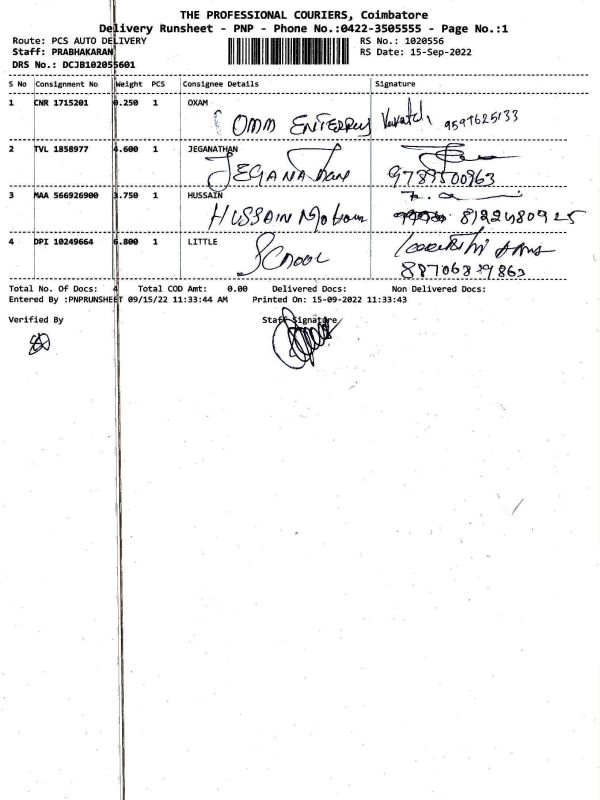 THE PROFESSIONAL COURIERS, Coimbatore
Delivery Runsheet - PNP - Phone No.:0422-3505555 - Page No.:1
Route: PCS AUTO DELIVERY RS No.: 1020556
Staff: PRABHAKARAN RS Date: 15-Sep-2022
DRS No.: DCJB102055601
S No Consignment No Weight PCS Consignee Details Signature
1 CNR 1715201 0.250 1 OXAM
OMM
2 TVL 1858977 4.600 1 JEGANATHAN
JEGANATHAN 9789500963
3 MAA 566926900 3.750 1 HUSSAIN
HUSSAIN
4 DPI 10249664 6.800 1 LITTLE
SCHOOL
Total No. Of Docs: 4 Total COD Amt: 0.00 Delivered Docs: Non Delivered Docs:
Entered By :PNPRUNSHEET 09/15/22 11:33:44 AM Printed On: 15-09-2022 11:33:43
Verified By Staff Signature